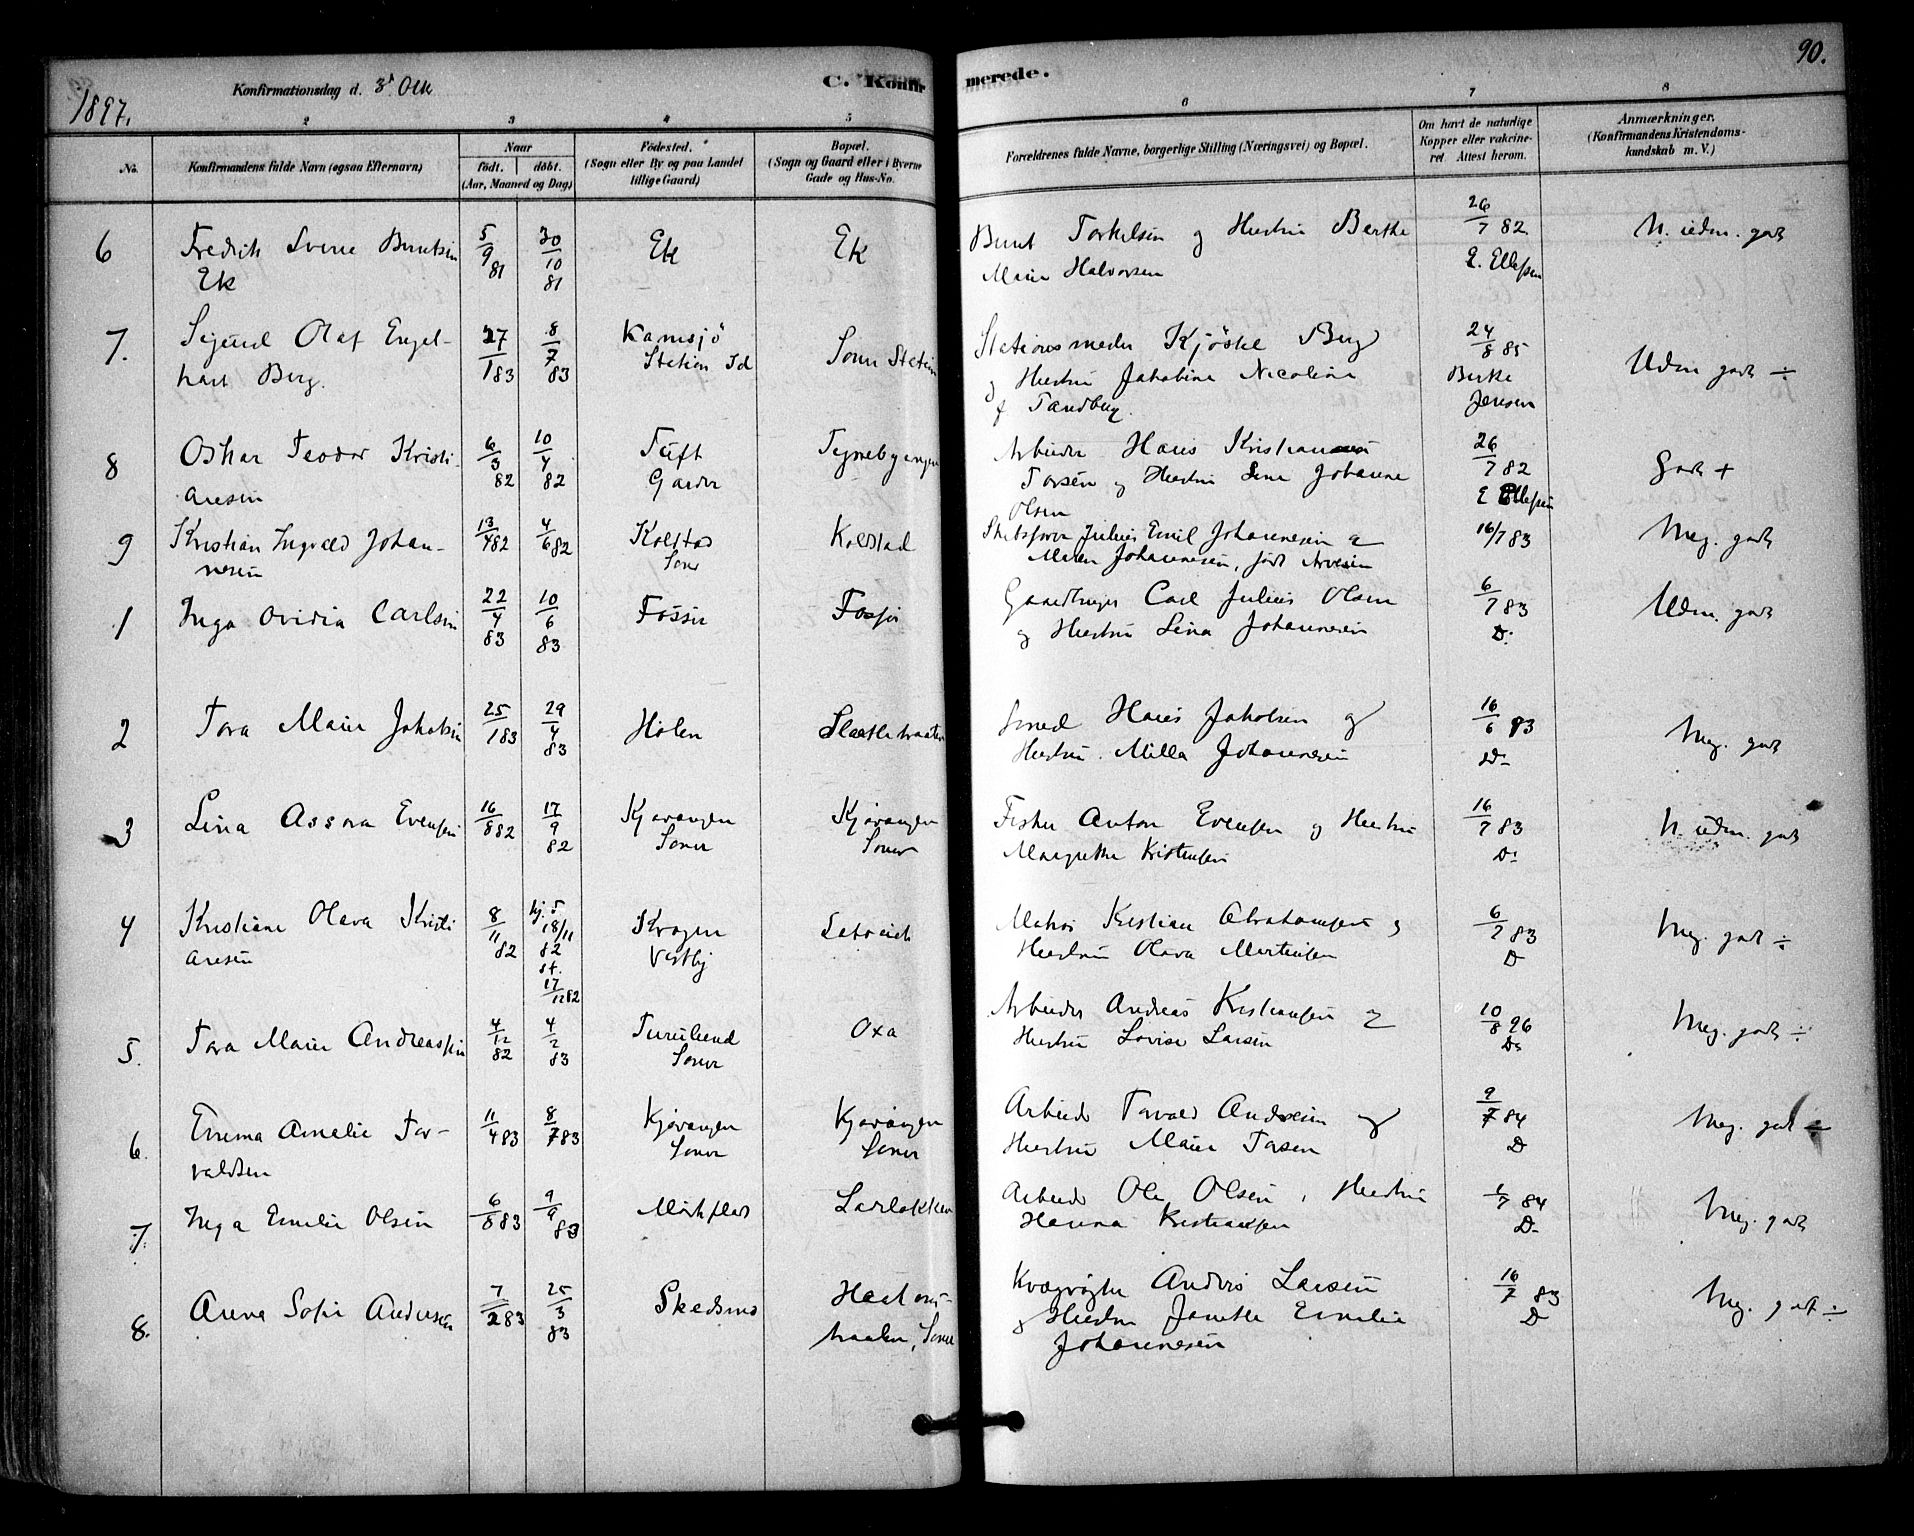 1897.
Konfirmationsdag d. 3' Okt
C. Konfir
merede.
90.
2
3
4
5
6
7
8
No.
Konfirmandens fulde Navn (ogsaa Efternavn)
Naar
født.
døbt.
(Aar, Maaned og Dag)
Fødested.
(Sogn eller By og paa Landet
tillige Gaard)
Bopæl.
(Sogn og Gaard eller i Byerne
Gade og Hus-No.
Forældrenes fulde Navne, borgerlige Stilling (Næringsvei) og Bopæl.
Om havt de naturlige
Kopper eller vakcine-
ret Attest herom.
Anmærkninger.
(Konfirmandens Kristendoms-
kundskab m. V.)
6 Fredrik Berntsen 5/9 81 30/10 81 Ek Ek Bernt Torkelsen og Hustru Berthe 26/7 82 N. udm. godt
Ek Marie Halvorsen E. Ellefsen
7. Sigurd Olaf Engel- 27/1 83 8/7 83 Kornsjö Soner Station Stationsmester Berg 24/8 85 Udm godt ÷
hart Berg. Station Id og Hustru Jakobine Nicoline Berthe
f Tandberg. Jensen
8 Oskar Teodor Kristi- 6/3 82 10/4 82 Tuft Arbeider Hans Kristian 26/7 82 Godt +
ansen Garder Torsen og Hustru Line Johanne E Ellefsen
Olsen
9 Kristian Ingvald Johan- 13/4 82 4/6 82 Kolstad Kolstad Julius Emil Johannesen & 16/7 83 Meg. godt
nesen Soner Maren Johannesen, født Arvesen
1 Inga Ovidia Carlsen 22/4 83 10/6 83 Fosser Fosser Gaardbruger Carl Julius Olsen 6/7 83 Udm. godt
og Hustru Lina Johannesen D.
2 Tora Marie Jakobsen 25/1 83 29/4 83 Hølen Smed Hans Jakobsen og 16/6 83 Meg. godt
Hustru Milla Johannesen D.
3 Lina Assora Evensen 16/8 82 17/9 82 Kjøvangen Kjøvangen Fisker Anton Evensen og Hustru 16/7 83 N. udm. godt
Soner Soner Margrethe Kristensen D.
4 Kristiane Olava Kristi 8/11 82 hj. d. 18/11 82 Krogen Matros Kristian Abrahamsen og 6/7 83 Meg. godt ÷
ansen st. 17/12 82 Vestby Hustru Olava Mortensen D
5. Tora Marie Andreassen 4/12 82 4/2 83 Oxa Arbeider Andreas Kristiansen og 10/8 96 Meg. godt ÷
Soner Hustru Lovise Larsen D.
6. Emma Amelie Tor- 11/4 83 8/7 83 Kjøvangen Kjøvangen Arbeider Torvald Andersen og 9/7 84 Meg. godt ÷
valdsen Soner Soner Hustru Marie Torsen D
7. Inga Emelie Olsen 6/8 83 9/9 83 Labo Arbeider Ole Olsen, Hustru 1/7 84 Meg. godt
Hanna Kristiansen D.
8. Anna Sofie Andersen 7/2 83 25/3 83 Skedsmo Kvægrøgter Anders Larsen 16/7 83 Meg. godt ÷
Soner og Hustru Janette Emelie D
Johannesen